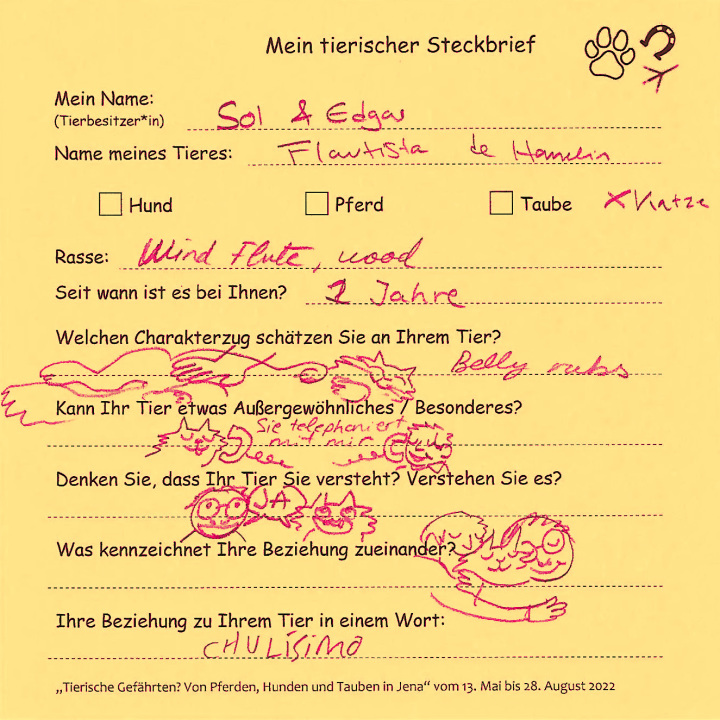 Mein tierischer Steckbrief
Mein Name: Sol & Edgar
(Tierbesitzer*in)
Name meines Tieres: Flautista de Hamelin
Hund Pferd Taube X Katze
Rasse: Wind Flute, wood
Seit wann ist es bei Ihnen? 1 Jahre
Welchen Charakterzug schätzen Sie an Ihrem Tier?
Belly rubs
Kann Ihr Tier etwas Außergewöhnliches / Besonderes?
Sie telephoniert
mit mir
Denken Sie, dass Ihr Tier Sie versteht? Verstehen Sie es?
JA
Was kennzeichnet Ihre Beziehung zueinander?
Ihre Beziehung zu Ihrem Tier in einem Wort:
CHULÍSIMO
„Tierische Gefährten? Von Pferden, Hunden und Tauben in Jena“ vom 13. Mai bis 28. August 2022